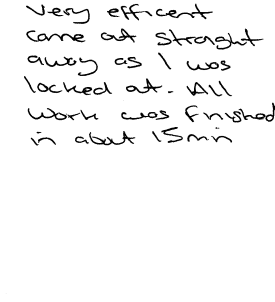 Very efficent
came out straight
away as I was
locked out. All
work was finished
in about 15min